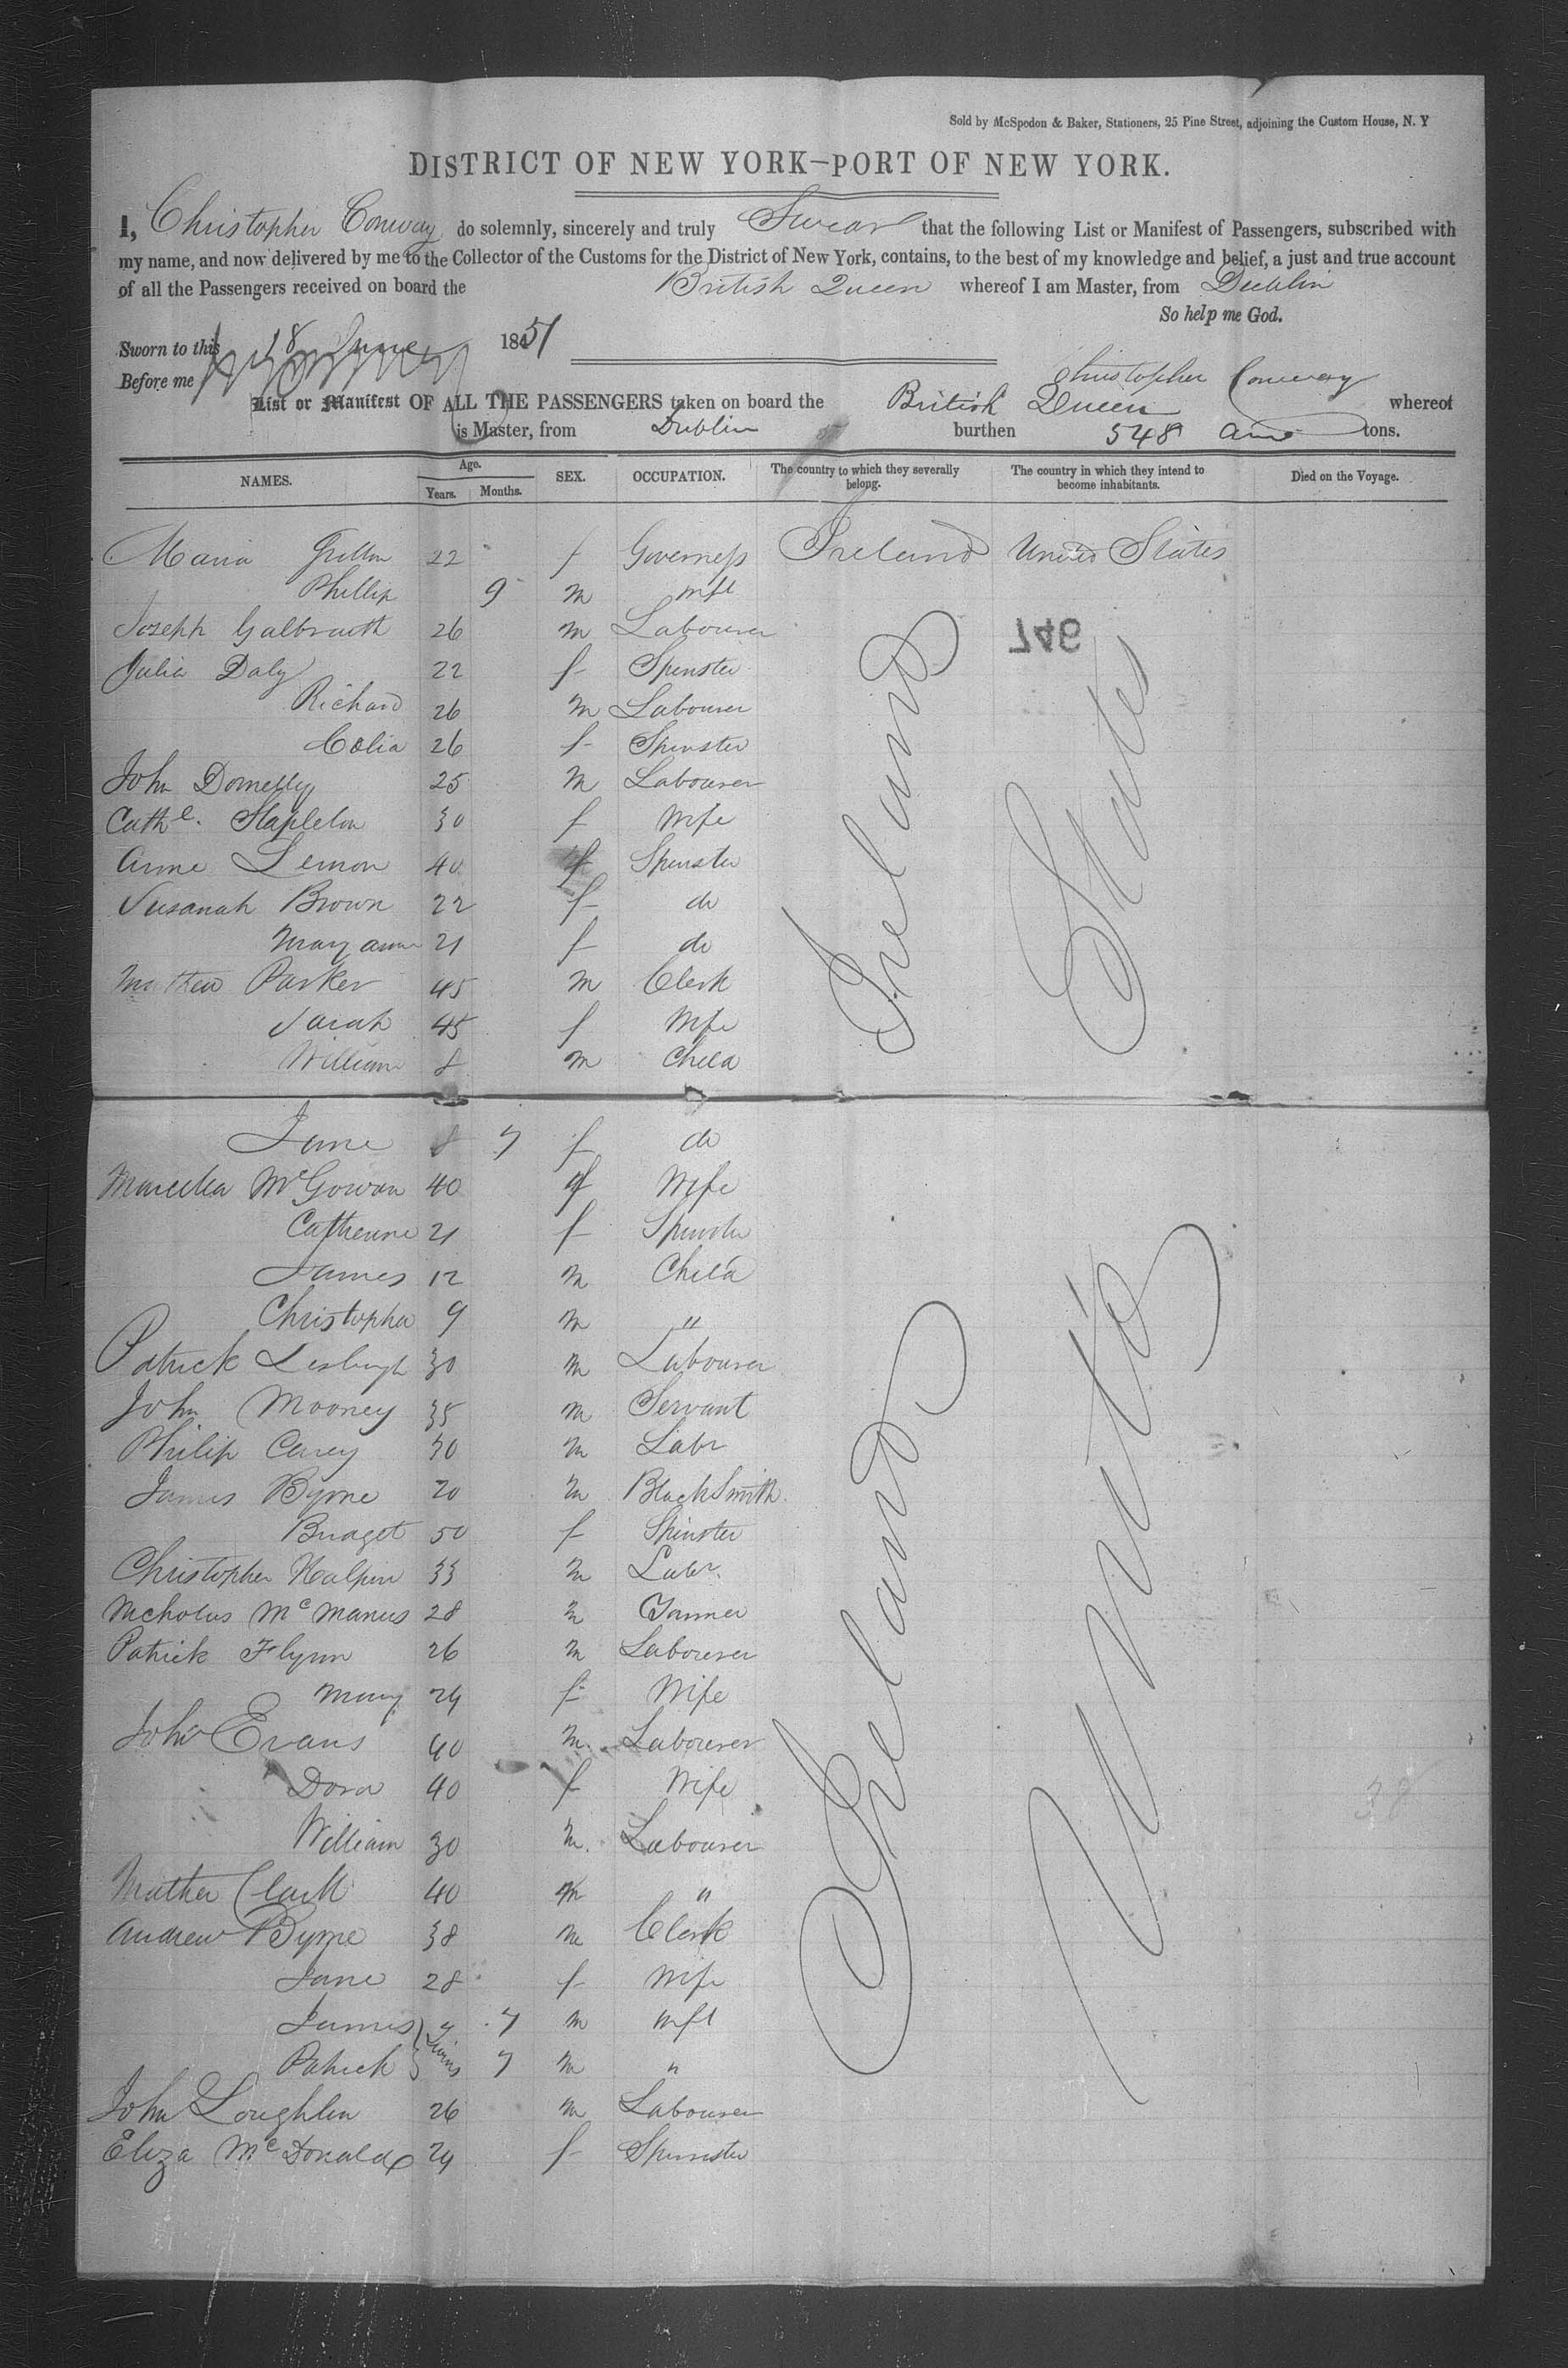 Sold by McSpedon & Baker, Stationers, 25 Pine Street, adjoining the Custom House, N. Y
DISTRICT OF NEW YORK—PORT OF NEW YORK.
I, Christopher Conway do solemnly, sincerely and truly Swear that the following List or Manifest of Passengers, subscribed with
my name, and now delivered by me to the Collector of the Customs for the District of New York, contains, to the best of my knowledge and belief, a just and true account
of all the Passengers received on board the British Queen whereof I am Master, from Dublin
So help me God.
Sworn to this 18 June 1851
Before me
Christopher Conway
List or Manifest OF ALL THE PASSENGERS taken on board the British Queen whereof
is Master, from Dublin burthen 548 tons.
NAMES. Age. Years. Months. SEX. OCCUPATION. The country to which they severally belong. The country in which they intend to become inhabitants. Died on the Voyage.
Maria 22 f Governess Ireland United States
Phillip 9 m inft
Joseph Galbraith 26 m Labourer
746
Julia Daly 22 f Spinster
Richard 26 m Labourer
Celia 26 f Spinster
John Donnelly 25 m Labourer
Cathe. Stapleton 30 f Wife
Anne Lemon 40 f Spinster
Susanah Brown 22 f do
Mary anne 21 f do
Mathew Parker 45 m Clerk
Sarah 45 f Wife
William 8 m Child
Ireland States
Jane 7 f do
McGowan 40 f Wife
Catherine 21 f Spinster
James 12 m Child
Christopher 9 m "
Patrick 30 m Labourer
John Mooney 35 m Servant
Philip Carey 30 m Labr
James Byrne 20 m BlackSmith
Bridget 50 f Spinster
Christopher Halpin 33 m Labr.
Nicholas McManus 28 m
Patrick Flynn 26 m Labourer
Mary 24 f Wife
John Evans 40 m Labourer
Dora 40 f Wife
38
William 30 m. Labourer
Clark 40 m "
Andrew Byrne 38 m Clerk
Jane 28 f Wife
James 7 m inft
twins
Patrick 7 m "
John Loughlin 26 m Labourer
Eliza McDonald 24 f Spinster
Ireland United